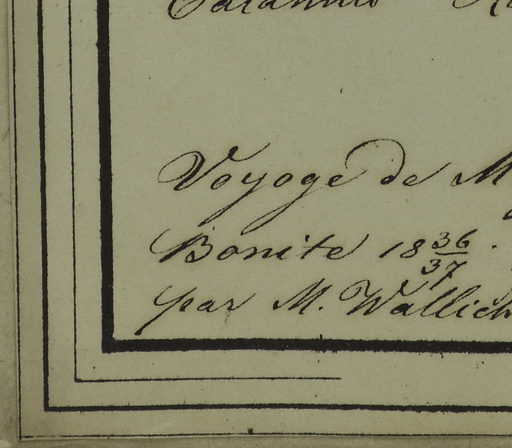 Calamus
Voyage de M
Bonite 18 36/37.
par M. Wallich